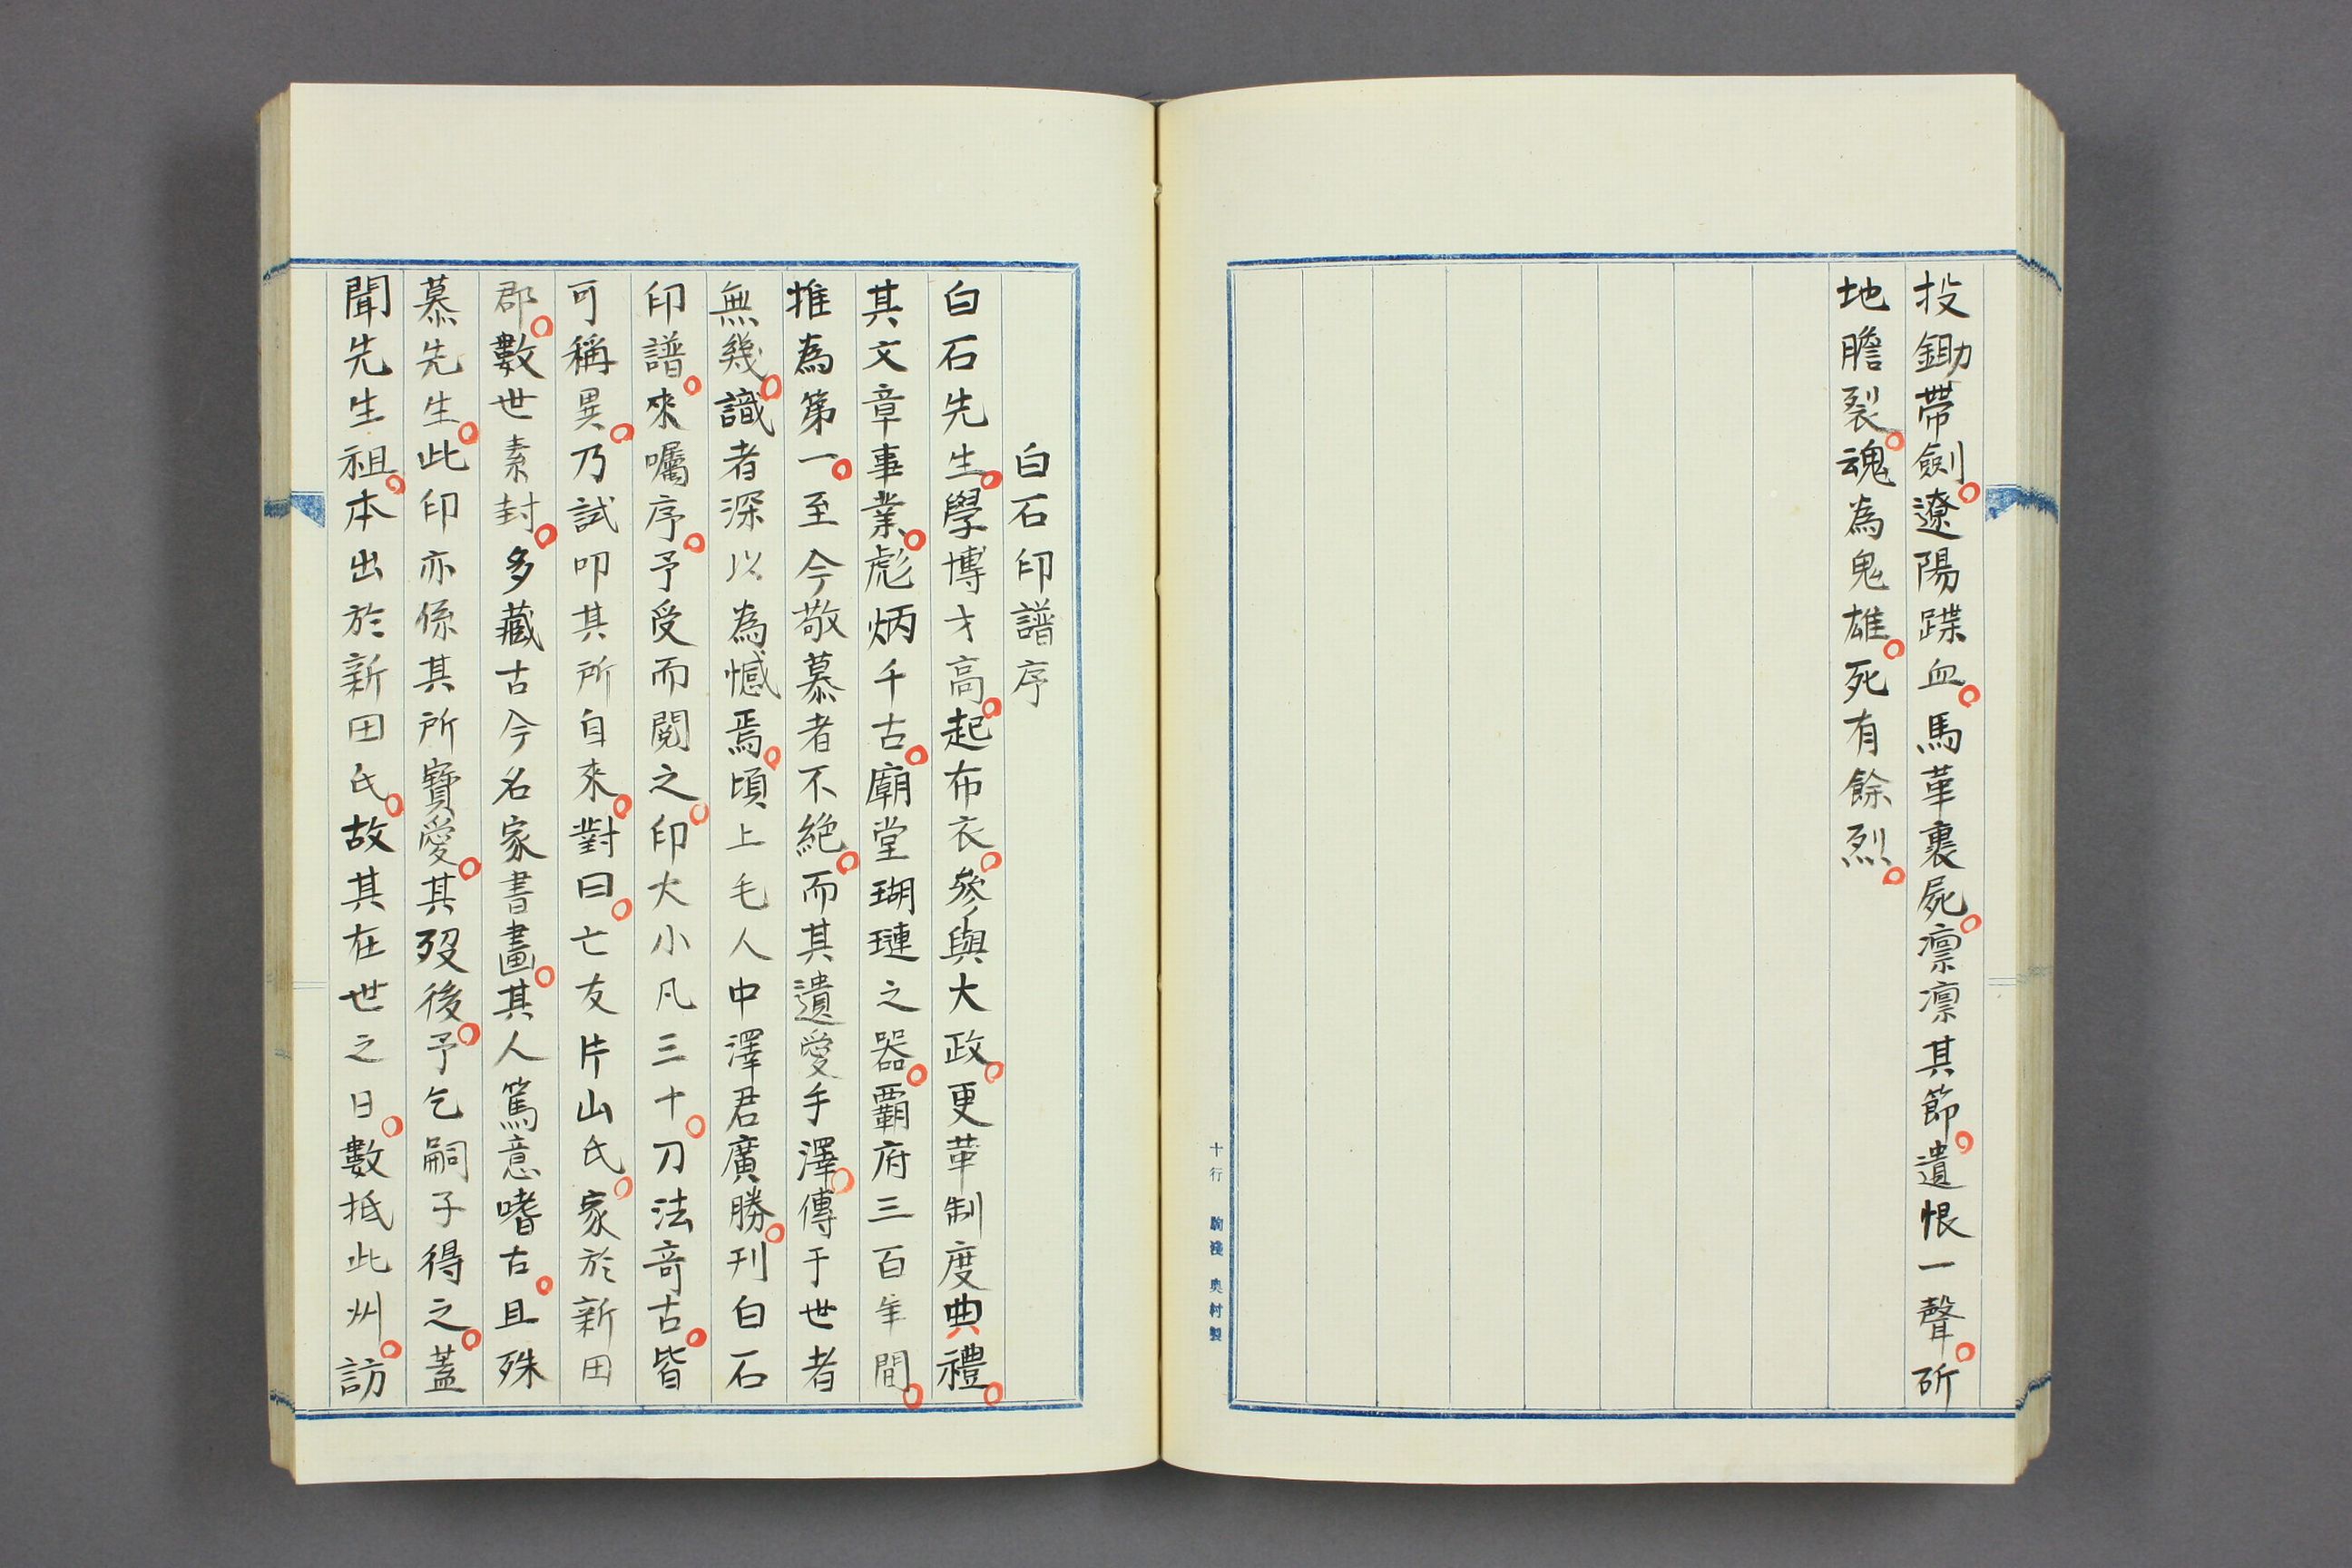 投鋤帶劍。遼陽蹀血。馬革裹屍。凛凛其節。遺恨一聲。斫
地膽裂。魂為鬼雄。死有餘烈。
十行 奥村製
白石印譜序
白石先生。學博才高。起布衣。參與大政。更革制度典禮。
其文章事業。彪炳千古。廟堂瑚璉之器。覇府三百年間。
推為第一。至今敬慕者不絕。而其遺愛手澤。傳于世者
無幾。識者深以為憾焉。頃上毛人中澤君廣勝。刊白石
印譜。來囑序。予受而閱之。印大小凡三十。刀法奇古。皆
可稱異。乃試叩其所自來。對曰。亡友片山氏。家於新田
郡。數世素封。多藏古今名家書畫。其人篤意嗜古。且殊
慕先生。此印亦係其所寶愛。其歿後。予乞嗣子得之。蓋
聞先生祖。本出於新田氏。故其在世之日。數抵此州。訪